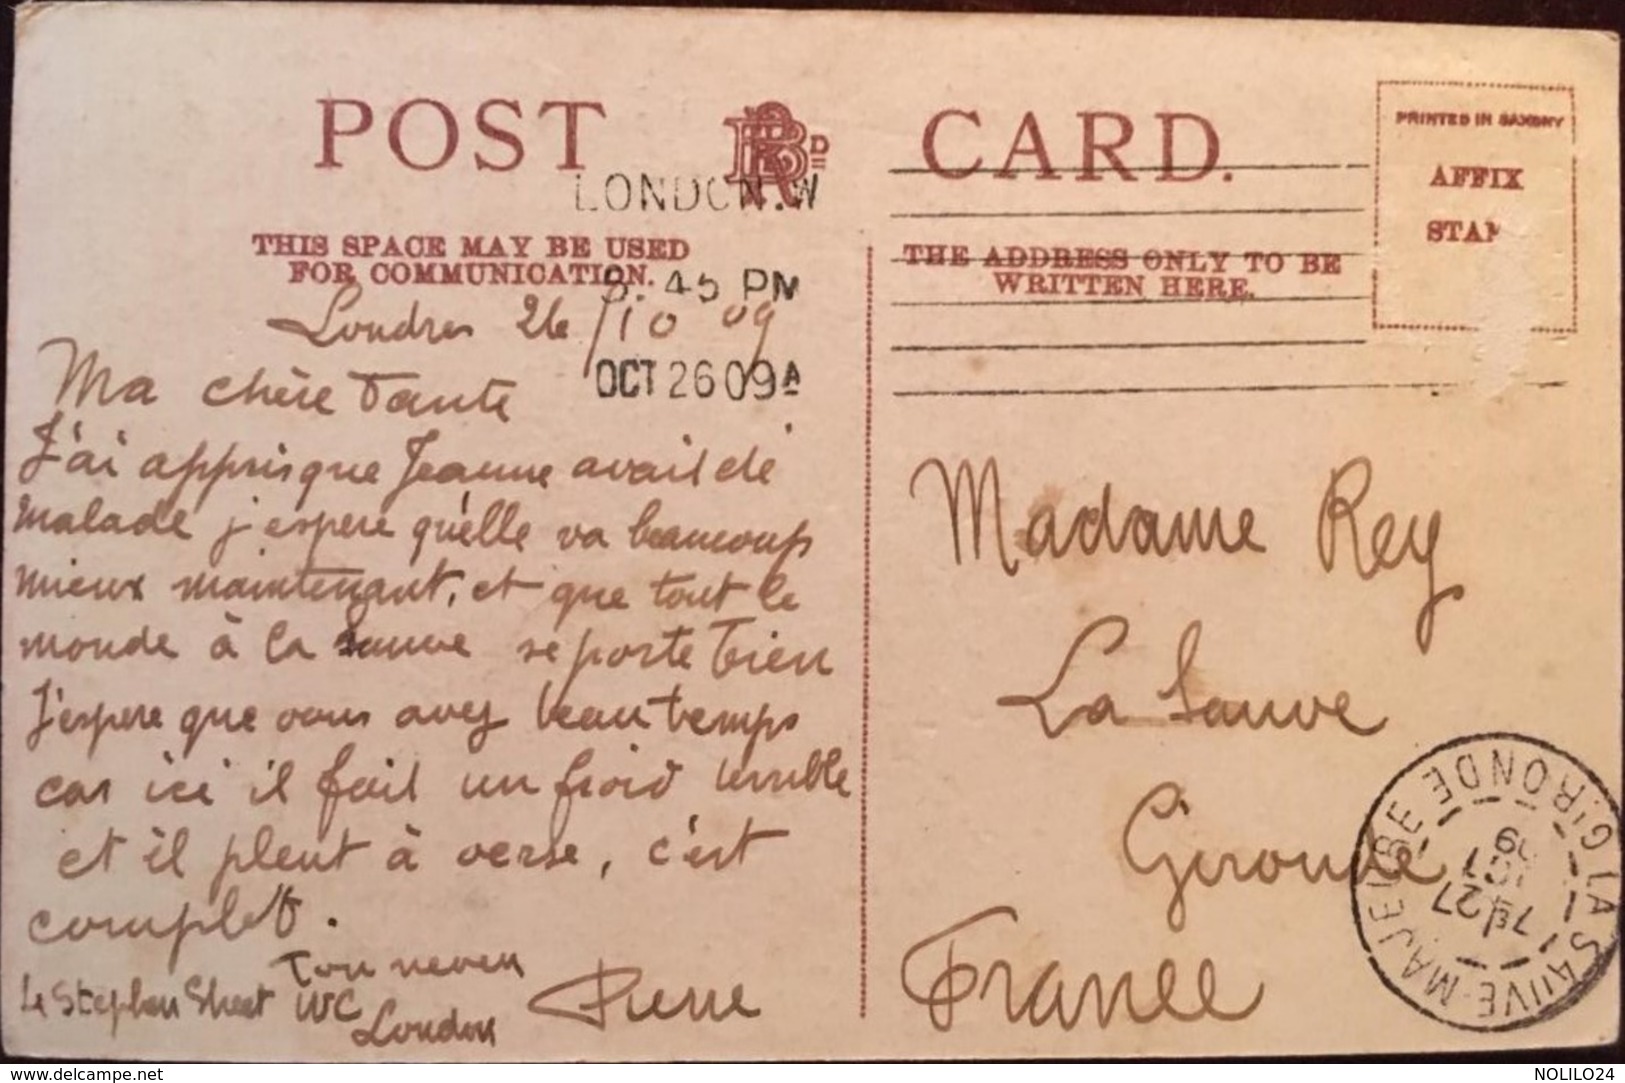 POST CARD.
LONDON.W
8.45 PM
OCT 26 09 A
THIS SPACE MAY BE USED
FOR COMMUNICATION.
THE ADDRESS ONLY TO BE
WRITTEN HERE.
PRINTED IN SAXONY
AFFIX
STAMP
Londres 26/10 09
Ma chère Tante
J'ai appris que Jeanne avait été
malade j'espere qu'elle va beaucoup
mieux maintenant, et que tout le
monde à La Sauve se porte bien
J'espere que vous avez beau temps
car ici il fait un froid terrible
et il pleut à verse, c'est
complet.
Ton neveu
Pierre
4 Stephen Street WC
London
Madame Rey
La Sauve
Gironde
France
LA SAUVE-MAJEURE GIRONDE
27
09
www.delcampe.net
NOLILO24